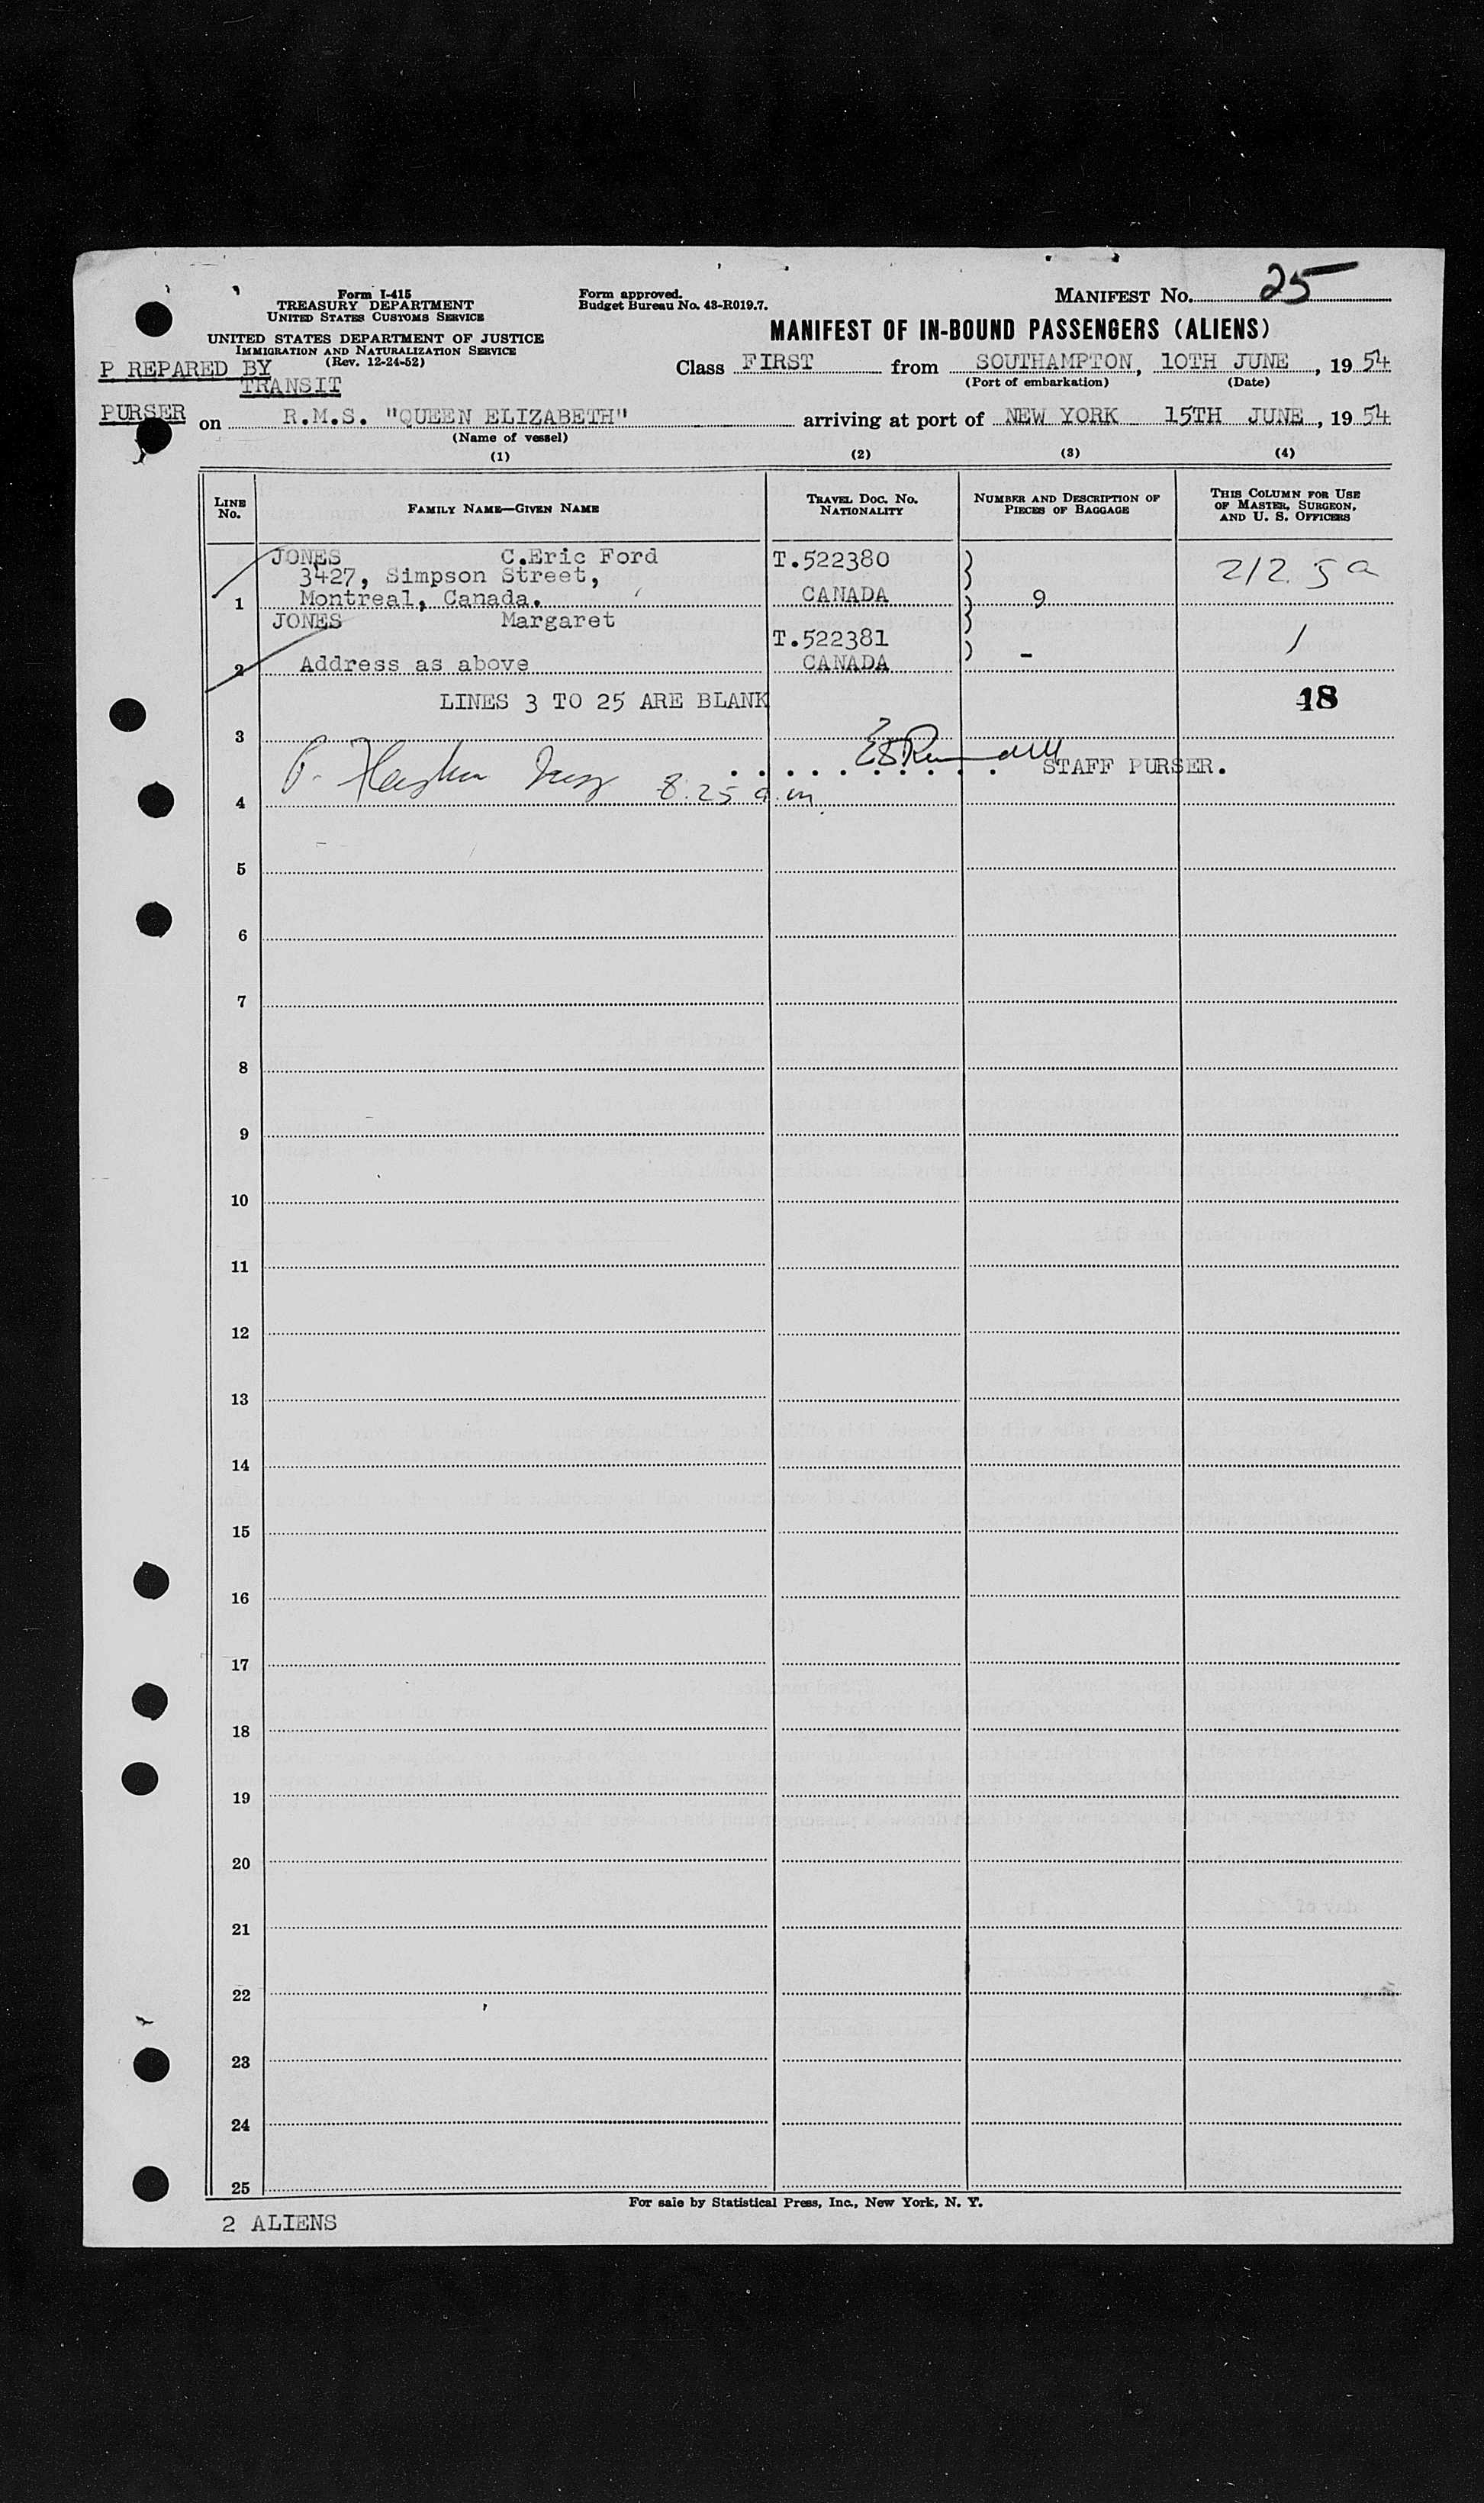 Form I-415
TREASURY DEPARTMENT
UNITED STATES CUSTOMS SERVICE
UNITED STATES DEPARTMENT OF JUSTICE
IMMIGRATION AND NATURALIZATION SERVICE
(Rev. 12-24-52)
Form approved.
Budget Bureau No. 43-R019.7.
MANIFEST NO. 25
MANIFEST OF IN-BOUND PASSENGERS (ALIENS)
P REPARED BY
TRANSIT
PURSER
Class FIRST from SOUTHAMPTON, 10TH JUNE, 1954
(Port of embarkation) (Date)
on R.M.S. "QUEEN ELIZABETH" arriving at port of NEW YORK 15TH JUNE, 1954
(Name of vessel)
(1) (2) (3) (4)
LINE No.
FAMILY NAME—GIVEN NAME
TRAVEL DOC. NO. NATIONALITY
NUMBER AND DESCRIPTION OF PIECES OF BAGGAGE
THIS COLUMN FOR USE OF MASTER, SURGEON, AND U. S. OFFICERS
JONES C.Eric Ford T.522380 ) 212.5a
3427, Simpson Street, )
1 Montreal, Canada. CANADA ) 9
JONES Margaret )
T.522381 ) /
2 Address as above CANADA -
LINES 3 TO 25 ARE BLANK 18
3
STAFF PURSER.
8.25 a.m.
4
5
6
7
8
9
10
11
12
13
14
15
16
17
18
19
20
21
22
23
24
25
For sale by Statistical Press, Inc., New York, N. Y.
2 ALIENS